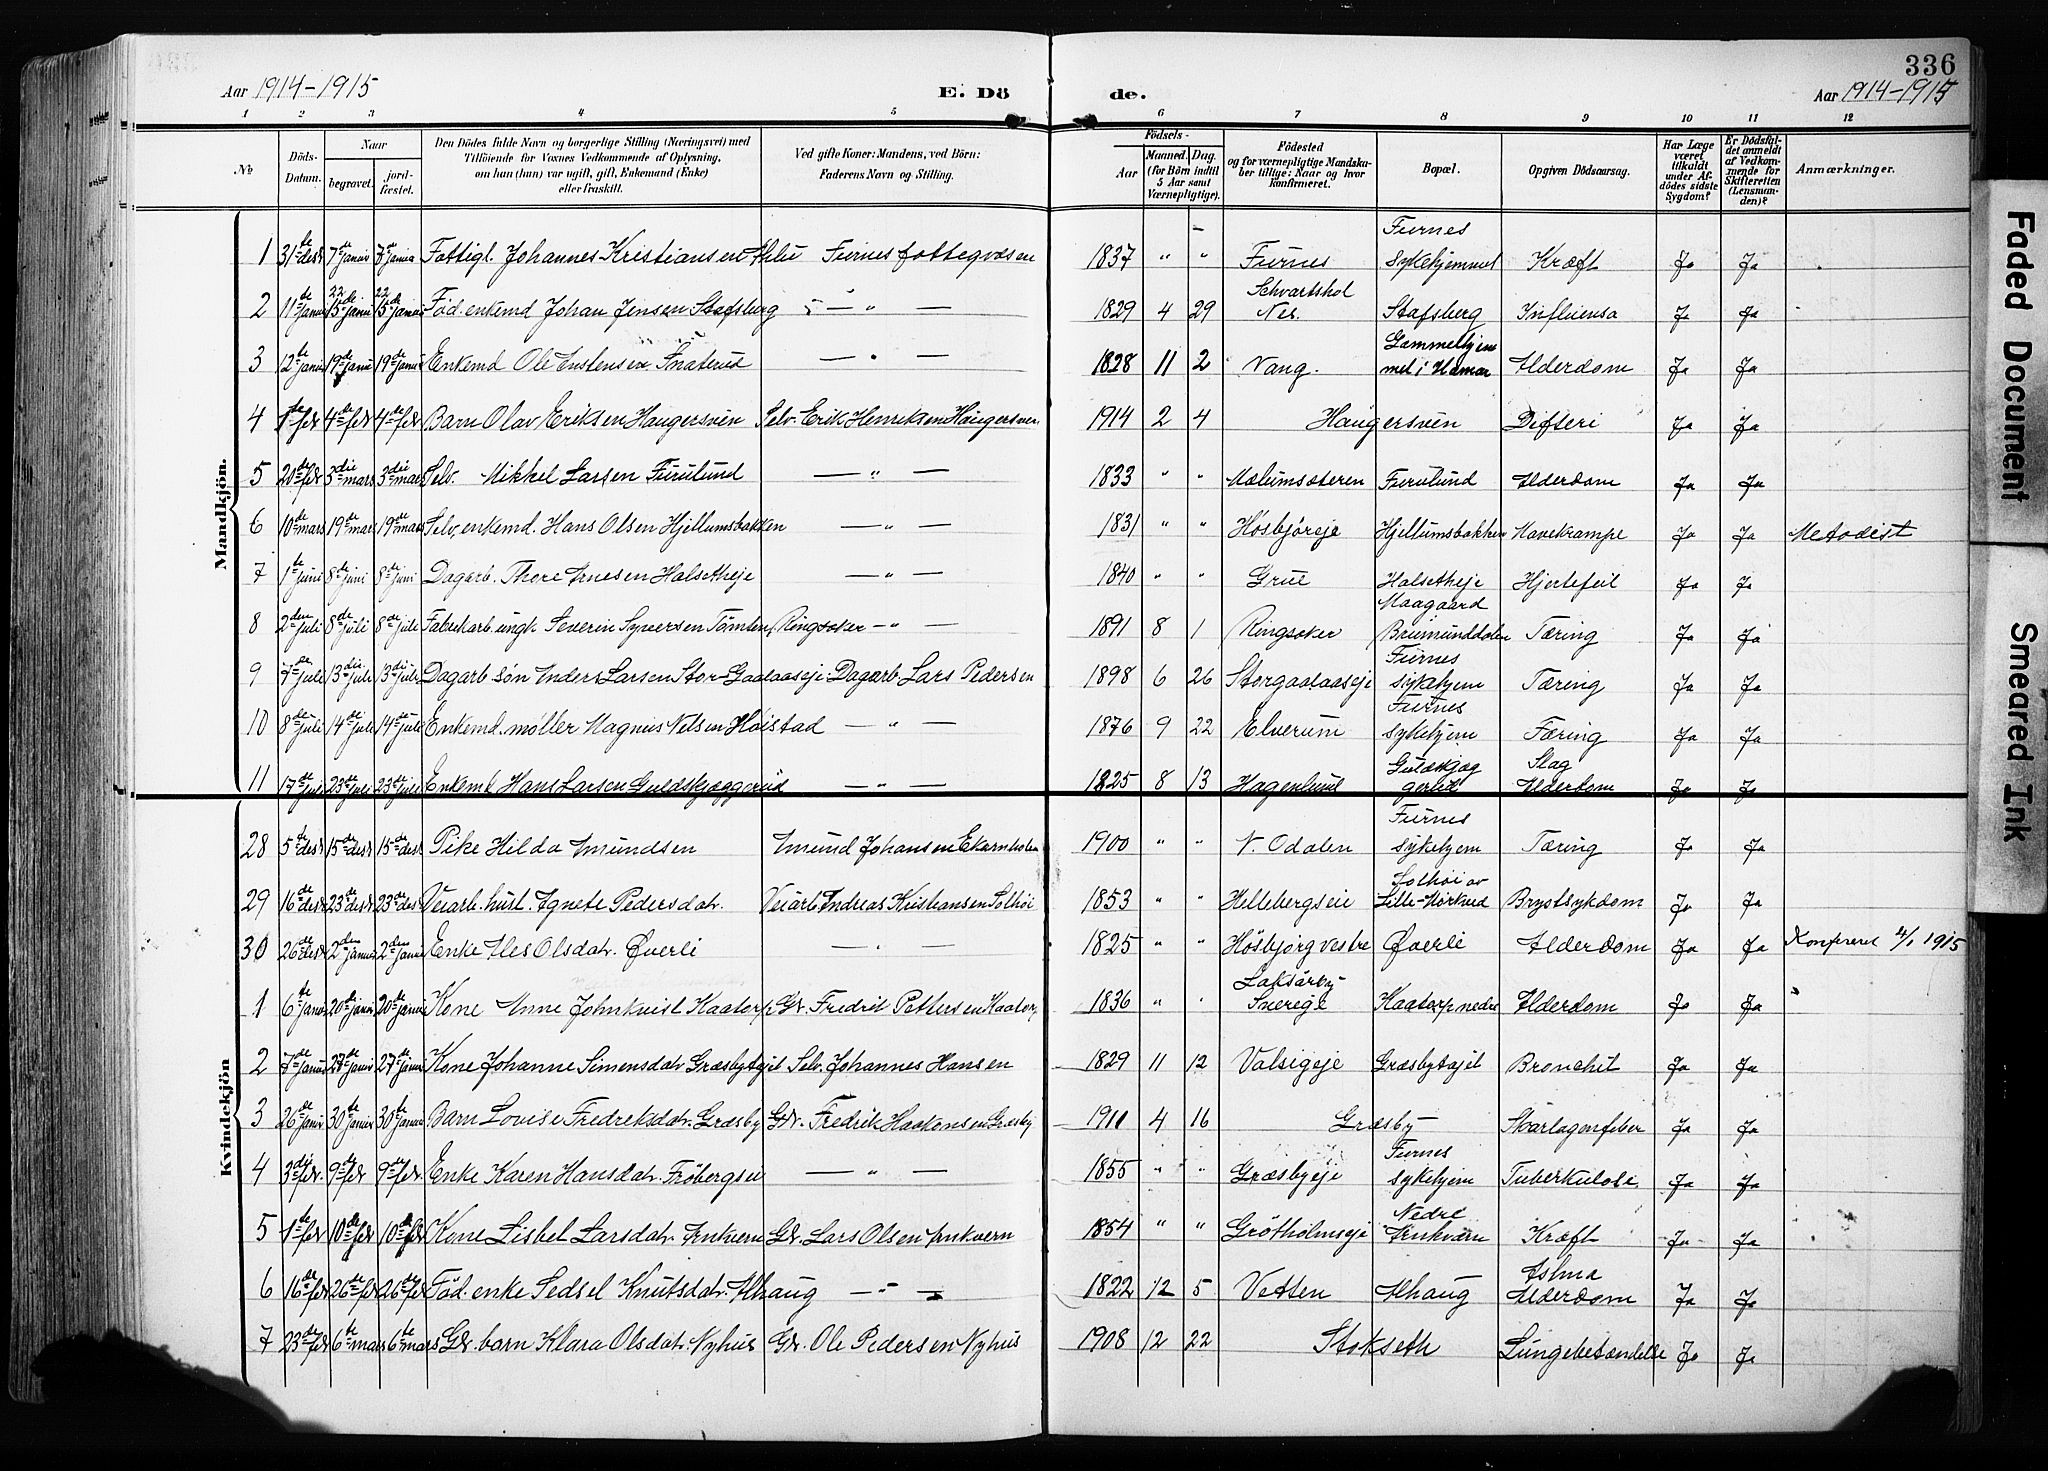 336
Aar 1914-1915
E. Dö
de.
Aar 1914-1915
1 2 3 4 5 6 7 8 9 10 11 12
No
Döds-Datum.
Naar
begravet.
jord-fæstet.
Den Dödes fulde Navn og borgerlige Stilling (Næringsvei) med
Tilföiende for Voxnes Vedkommende af Oplysning,
om han (hun) var ugift, gift, Enkemand (Enke)
eller fraskilt.
Ved gifte Koner: Mandens, ved Börn:
Faderens Navn og Stilling.
Födsels-
Aar
Maaned. Dag.
(for Börn indtil
5 Aar samt
Værnepligtige).
Födested
og for værnepligtige Mandska-
ber tillige: Naar og hvor
konfirmeret.
Bopæl.
Opgiven Dödsaarsag.
Har Læge
været
tilkaldt
under Af-
dödes sidste
Sygdom?
Er Dödsfal-
det anmeldt
af Vedkom-
mende for
Skifteretten
(Lensman-
den)?
Anmærkninger.
Mandkjön.
1 31te desr 7de januar 7de janua Fattigl. Johannes Kristiansen Furnes fattegvæsen 1837 " " Furnes Furnes Sykehjemmet Kræft Ja Ja
2 11te januar 22 15de januar 22 15de januar Föd. enkemd Johan Jensen Stafsberg — " — 1829 4 29 Schvartshol Nes. Stafsberg Influensa Ja Ja
3 12te januar 19de janu 19de januar Enkemd Ole Enstensen Snaterud — " — 1828 11 2 Vang. Gammelhjem met i Hamar Alderdom Ja Ja
4 1ste febr 4de febr 4de febr Barn Olav Eriksen Haugersvën Selv. Erik Henriksen Haugersven 1914 2 4 Haugersvën Difteri Ja Ja
5 20de febr 3die mars 3die mars Selv. Mikkel Larsen Furulund — " — 1833 " " Mælumsæteren Furulund Alderdom Ja Ja
6 10de mars 19de mars 19de mars Selv, enkemd. Hans Olsen Hjellumsbakken — " — 1831 " " Høsbjøreje Hjellumsbakken Mavekrampe Ja Ja Metodist
7 1ste juni 8de juni 8de juni Dagarb. Thore Arnesen Halsetheje — " — 1840 " " Grue Halsetheje Hjertefeil Ja Ja
8 2den juli 8de juli 8de juli Fabrikarb. ungk. Severin Syversen Tömten, Ringsaker — " — 1891 8 1 Ringsaker Maagaard Brumunddalen Tæring Ja Ja
9 7de juli 13die juli 13die juli Dagarb. søn Anders Larsen Stor-Gaalaaseje Dagarb. Lars Pedersen 1898 6 26 Storgaalaaseje Furnes sykehjem Tæring Ja Ja
10 8de juli 14de juli 14de juli Enkemd. møller Magnus Nilsen Høistad — " — 1876 9 22 Elverum Furnes sykehjem Tæring Ja Ja
11 17de juli 23de juli 23de juli Enkemd Hans Larsen Guldskjæggerud — " — 1825 8 13 Hagenlund Guldskjæg gerud Slag Alderdom Ja Ja
Kvindekjön
28 5te desr 15de desr 15de desr Pike Hilda Amundsen Amund Johansen Ekornholen 1900 " " N. Odalen Furnes sykehjem Tæring Ja Ja
29 16de desr 23de desr 23de desr Veiarb. hust. Agnete Pedersdatr. Veiarb. Andreas Kristiansen Solhøi 1853 " " Hellebergseie Solhøi av Lille-Mörkved Brystsykdom Ja Ja
30 26de desr 2den januar 2den januar Enke Ales Olsdatr. Øverli — " — 1825 " " Høsbjørg vestre Øverli Alderdom Ja Ja Konfereret 4/1 1915
1 6te januar 20de januar 20de januar Kone Anne Johnkvist Kaatorp Gr. Fredrik Pettersen Kaatorp 1836 " " Laksårby Sverige Kaatorp nedre Alderdom Ja Ja
2 7de januar 27de januar 27de januar Kone Johanne Simensdatr Græsbytajet Selv. Johannes Hansen 1829 11 12 Valsigeje Græsbytajet Bronchit Ja Ja
3 26de januar 30de januar 30de januar Barn Lovise Fredriksdatr. Græsby Gr. Fredrik Haakonsen Græsby 1911 4 16 Græsby Skarlagenfeber Ja Ja
4 3die febr. 9de febr 9de febr. Enke Karen Hansdatr. Frøbergseie — " — 1855 " " Græsbyeje Furnes sykehjem Tuberkulose Ja Ja
5 1ste febr 10de febr 10de febr Kone Lisbet Larsdatr Arnkvern Gr. Lars Olsen Arnkvern 1854 " " Grötholmseje Nedre Arnkværn Kræft Ja Ja
6 16de febr 26de febr 26de febr Föd. enke Sedsel Knutsdatr. Alhaug — " — 1822 12 5 Vetten Alhaug Astma Alderdom Ja Ja
7 23de febr 6te mars 6te mars Gr. barn Klara Olsdatr. Nyhus Gr. Ole Pedersen Nyhus 1908 12 22 Stokseth Lungebetændelse Ja Ja
Faded Document
Smeared Ink